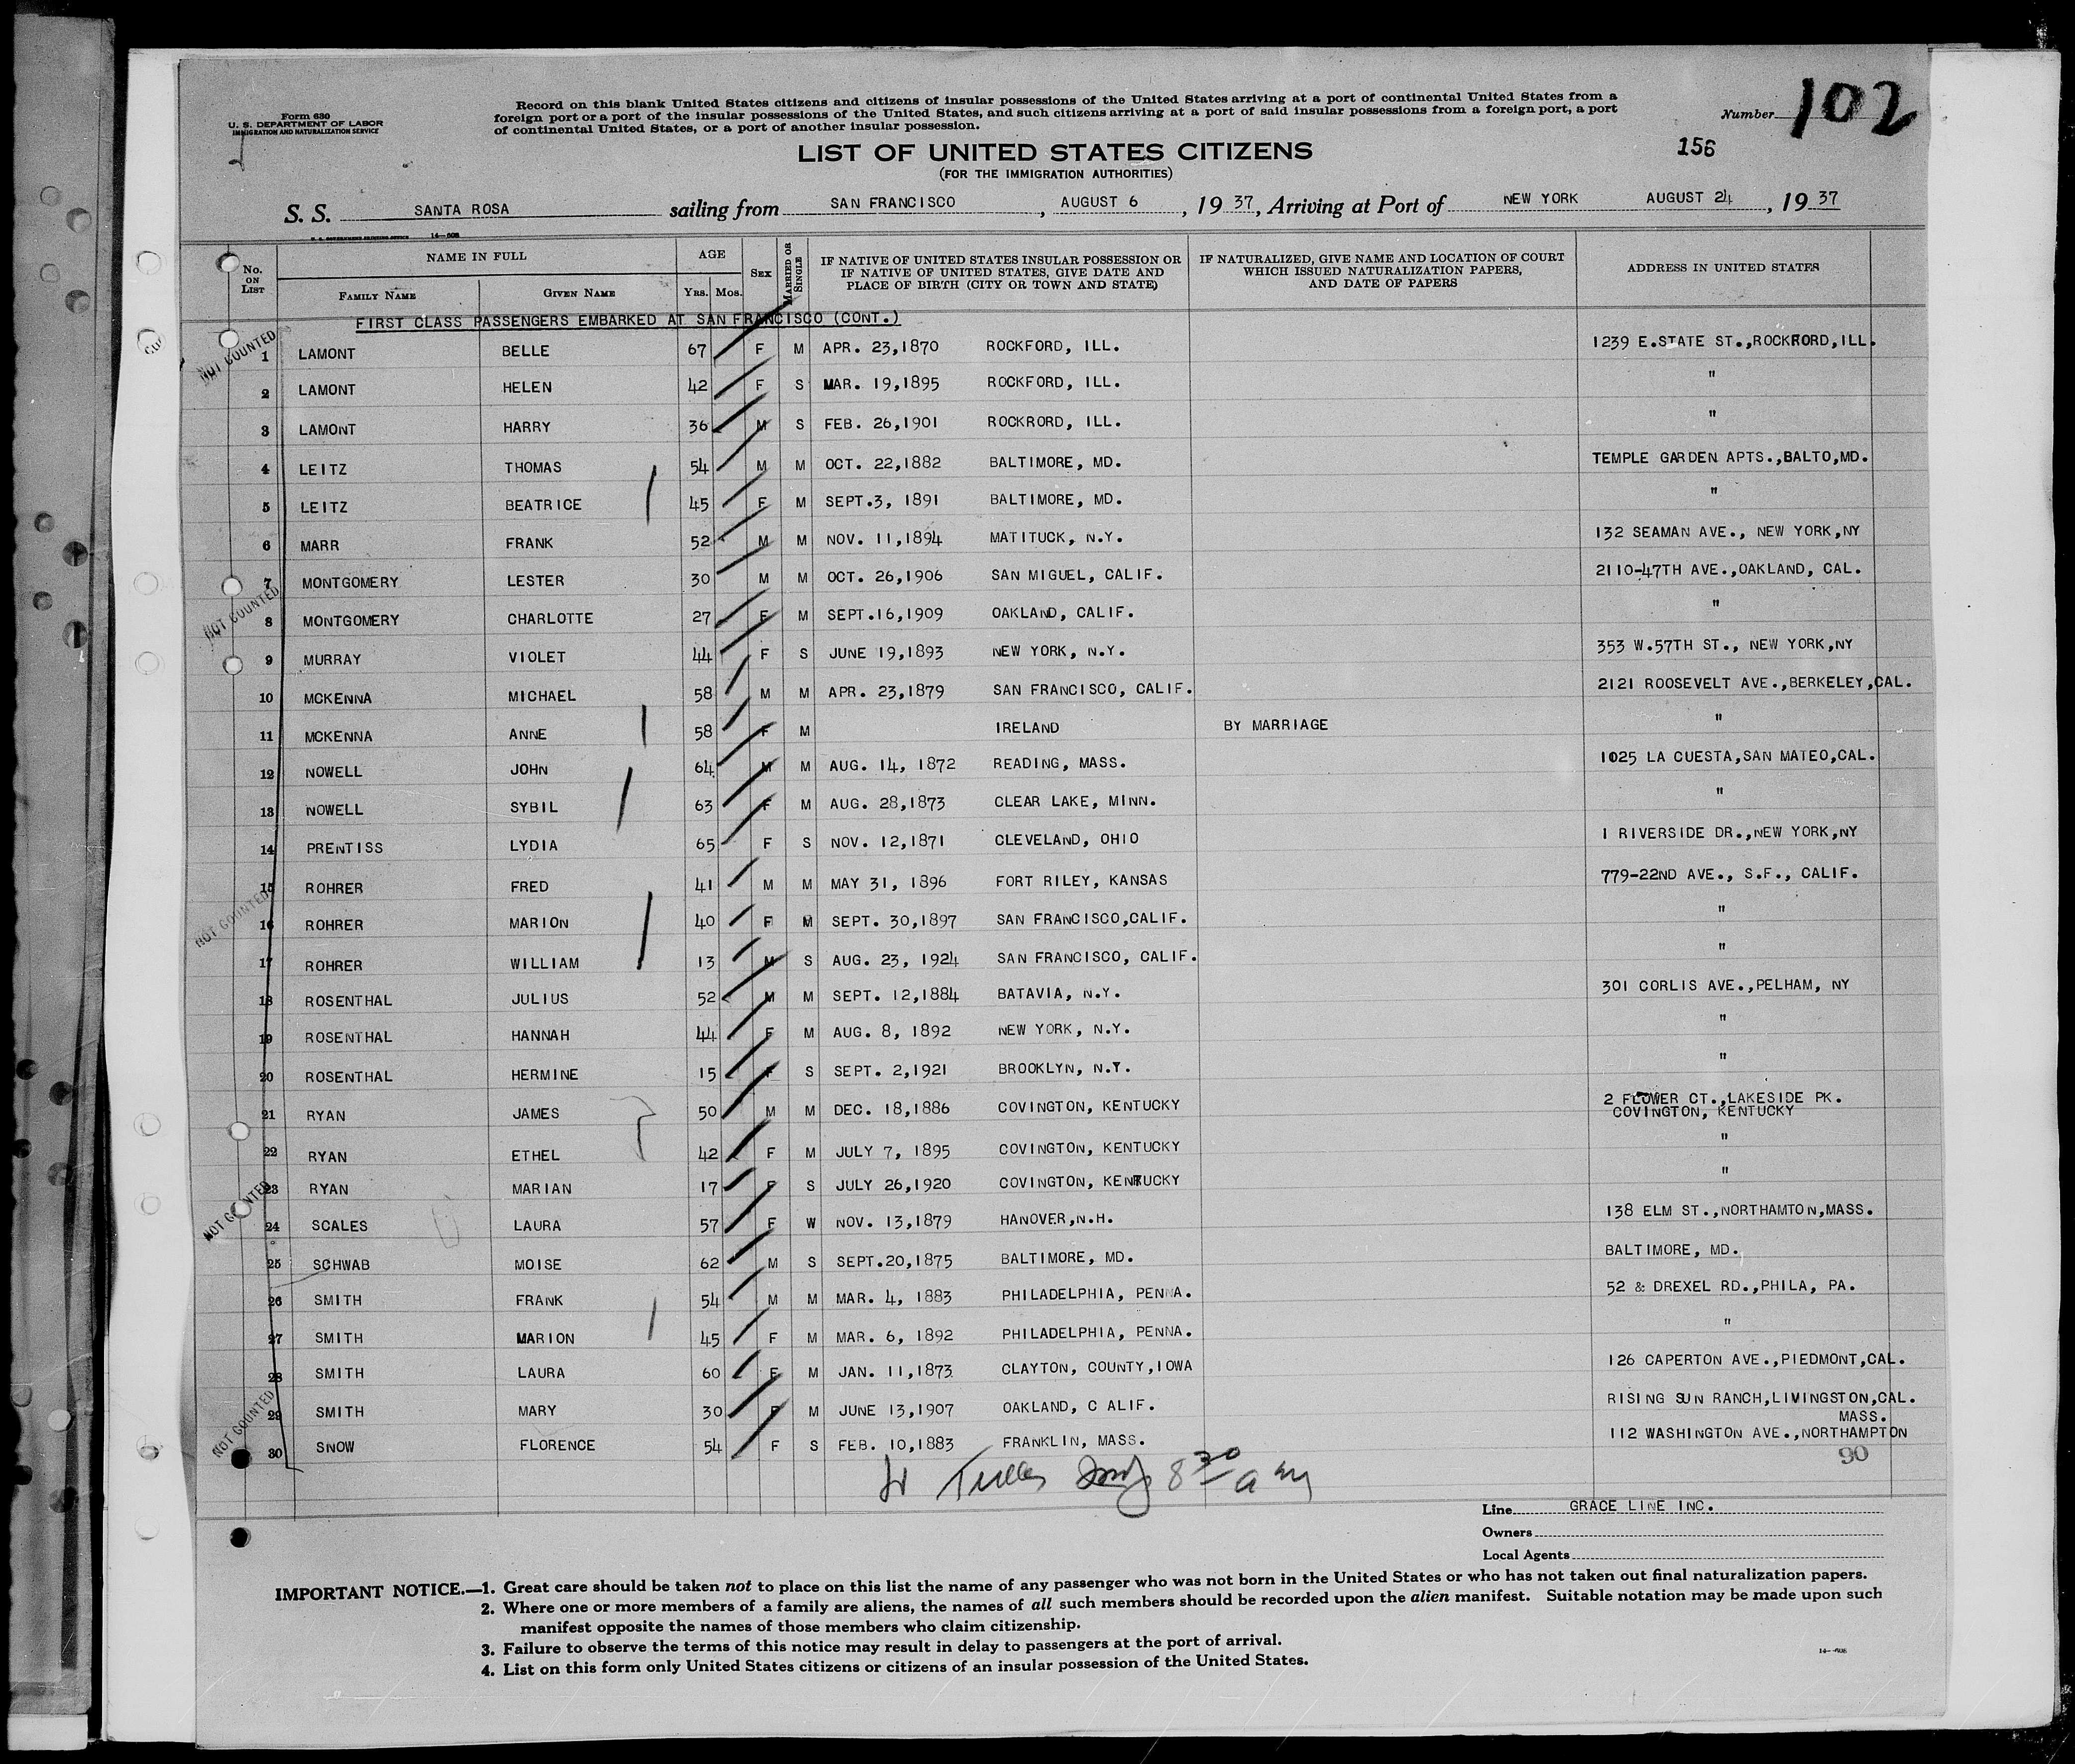 Form 630
U. S. DEPARTMENT OF LABOR
IMMIGRATION AND NATURALIZATION SERVICE
Record on this blank United States citizens and citizens of insular possessions of the United States arriving at a port of continental United States from a
foreign port or a port of the insular possessions of the United States, and such citizens arriving at a port of said insular possessions from a foreign port, a port
of continental United States, or a port of another insular possession.
Number 102
156
LIST OF UNITED STATES CITIZENS
(FOR THE IMMIGRATION AUTHORITIES)
S. S. SANTA ROSA sailing from SAN FRANCISCO, AUGUST 6, 1937, Arriving at Port of NEW YORK AUGUST 24, 1937
U. S. GOVERNMENT PRINTING OFFICE 14—608
No. ON LIST NAME IN FULL FAMILY NAME GIVEN NAME AGE YRS. MOS. SEX MARRIED OR SINGLE IF NATIVE OF UNITED STATES INSULAR POSSESSION OR IF NATIVE OF UNITED STATES, GIVE DATE AND PLACE OF BIRTH (CITY OR TOWN AND STATE) IF NATURALIZED, GIVE NAME AND LOCATION OF COURT WHICH ISSUED NATURALIZATION PAPERS, AND DATE OF PAPERS ADDRESS IN UNITED STATES
FIRST CLASS PASSENGERS EMBARKED AT SAN FRANCISCO (CONT.)
NOT COUNTED
1 LAMONT BELLE 67 F M APR. 23,1870 ROCKFORD, ILL. 1239 E.STATE ST.,ROCKFORD,ILL.
2 LAMONT HELEN 42 F S MAR. 19,1895 ROCKFORD, ILL. "
3 LAMONT HARRY 36 M S FEB. 26,1901 ROCKRORD, ILL. "
4 LEITZ THOMAS 54 M M OCT. 22,1882 BALTIMORE, MD. TEMPLE GARDEN APTS.,BALTO,MD.
5 LEITZ BEATRICE 45 F M SEPT.3, 1891 BALTIMORE, MD. "
6 MARR FRANK 52 M M NOV. 11,1894 MATITUCK, N.Y. 132 SEAMAN AVE., NEW YORK,NY
7 MONTGOMERY LESTER 30 M M OCT. 26,1906 SAN MIGUEL, CALIF. 2110-47TH AVE.,OAKLAND, CAL.
NOT COUNTED
8 MONTGOMERY CHARLOTTE 27 F M SEPT.16,1909 OAKLAND, CALIF. "
9 MURRAY VIOLET 44 F S JUNE 19,1893 NEW YORK, N.Y. 353 W.57TH ST., NEW YORK,NY
10 MCKENNA MICHAEL 58 M M APR. 23,1879 SAN FRANCISCO, CALIF. 2121 ROOSEVELT AVE.,BERKELEY,CAL.
11 MCKENNA ANNE 58 F M IRELAND BY MARRIAGE "
12 NOWELL JOHN 64 M M AUG. 14, 1872 READING, MASS. 1025 LA CUESTA,SAN MATEO,CAL.
13 NOWELL SYBIL 63 F M AUG. 28,1873 CLEAR LAKE, MINN. "
14 PRENTISS LYDIA 65 F S NOV. 12,1871 CLEVELAND, OHIO 1 RIVERSIDE DR.,NEW YORK,NY
15 ROHRER FRED 41 M M MAY 31, 1896 FORT RILEY, KANSAS 779-22ND AVE., S.F., CALIF.
NOT COUNTED
16 ROHRER MARION 40 F M SEPT. 30,1897 SAN FRANCISCO,CALIF. "
17 ROHRER WILLIAM 13 M S AUG. 23, 1924 SAN FRANCISCO, CALIF. "
18 ROSENTHAL JULIUS 52 M M SEPT. 12,1884 BATAVIA, N.Y. 301 CORLIS AVE.,PELHAM, NY
19 ROSENTHAL HANNAH 44 F M AUG. 8, 1892 NEW YORK, N.Y. "
20 ROSENTHAL HERMINE 15 F S SEPT. 2,1921 BROOKLYN, N.Y. "
21 RYAN JAMES 50 M M DEC. 18,1886 COVINGTON, KENTUCKY 2 FLOWER CT.,LAKESIDE PK.
COVINGTON, KENTUCKY
22 RYAN ETHEL 42 F M JULY 7, 1895 COVINGTON, KENTUCKY "
23 RYAN MARIAN 17 F S JULY 26,1920 COVINGTON, KENTUCKY "
NOT COUNTED
24 SCALES LAURA 57 F W NOV. 13,1879 HANOVER,N.H. 138 ELM ST.,NORTHAMTON,MASS.
25 SCHWAB MOISE 62 M S SEPT.20,1875 BALTIMORE, MD. BALTIMORE, MD.
26 SMITH FRANK 54 M M MAR. 4, 1883 PHILADELPHIA, PENNA. 52 & DREXEL RD.,PHILA, PA.
27 SMITH MARION 45 F M MAR. 6, 1892 PHILADELPHIA, PENNA. "
28 SMITH LAURA 60 F M JAN. 11,1873 CLAYTON, COUNTY,IOWA 126 CAPERTON AVE.,PIEDMONT,CAL.
29 SMITH MARY 30 F M JUNE 13,1907 OAKLAND, C ALIF. RISING SUN RANCH,LIVINGSTON,CAL.
NOT COUNTED
MASS.
30 SNOW FLORENCE 54 F S FEB. 10,1883 FRANKLIN, MASS. 112 WASHINGTON AVE.,NORTHAMPTON
90
8 30 a m
Line GRACE LINE INC.
Owners
Local Agents
IMPORTANT NOTICE.—1. Great care should be taken not to place on this list the name of any passenger who was not born in the United States or who has not taken out final naturalization papers.
2. Where one or more members of a family are aliens, the names of all such members should be recorded upon the alien manifest. Suitable notation may be made upon such
manifest opposite the names of those members who claim citizenship.
3. Failure to observe the terms of this notice may result in delay to passengers at the port of arrival.
4. List on this form only United States citizens or citizens of an insular possession of the United States.
14—608